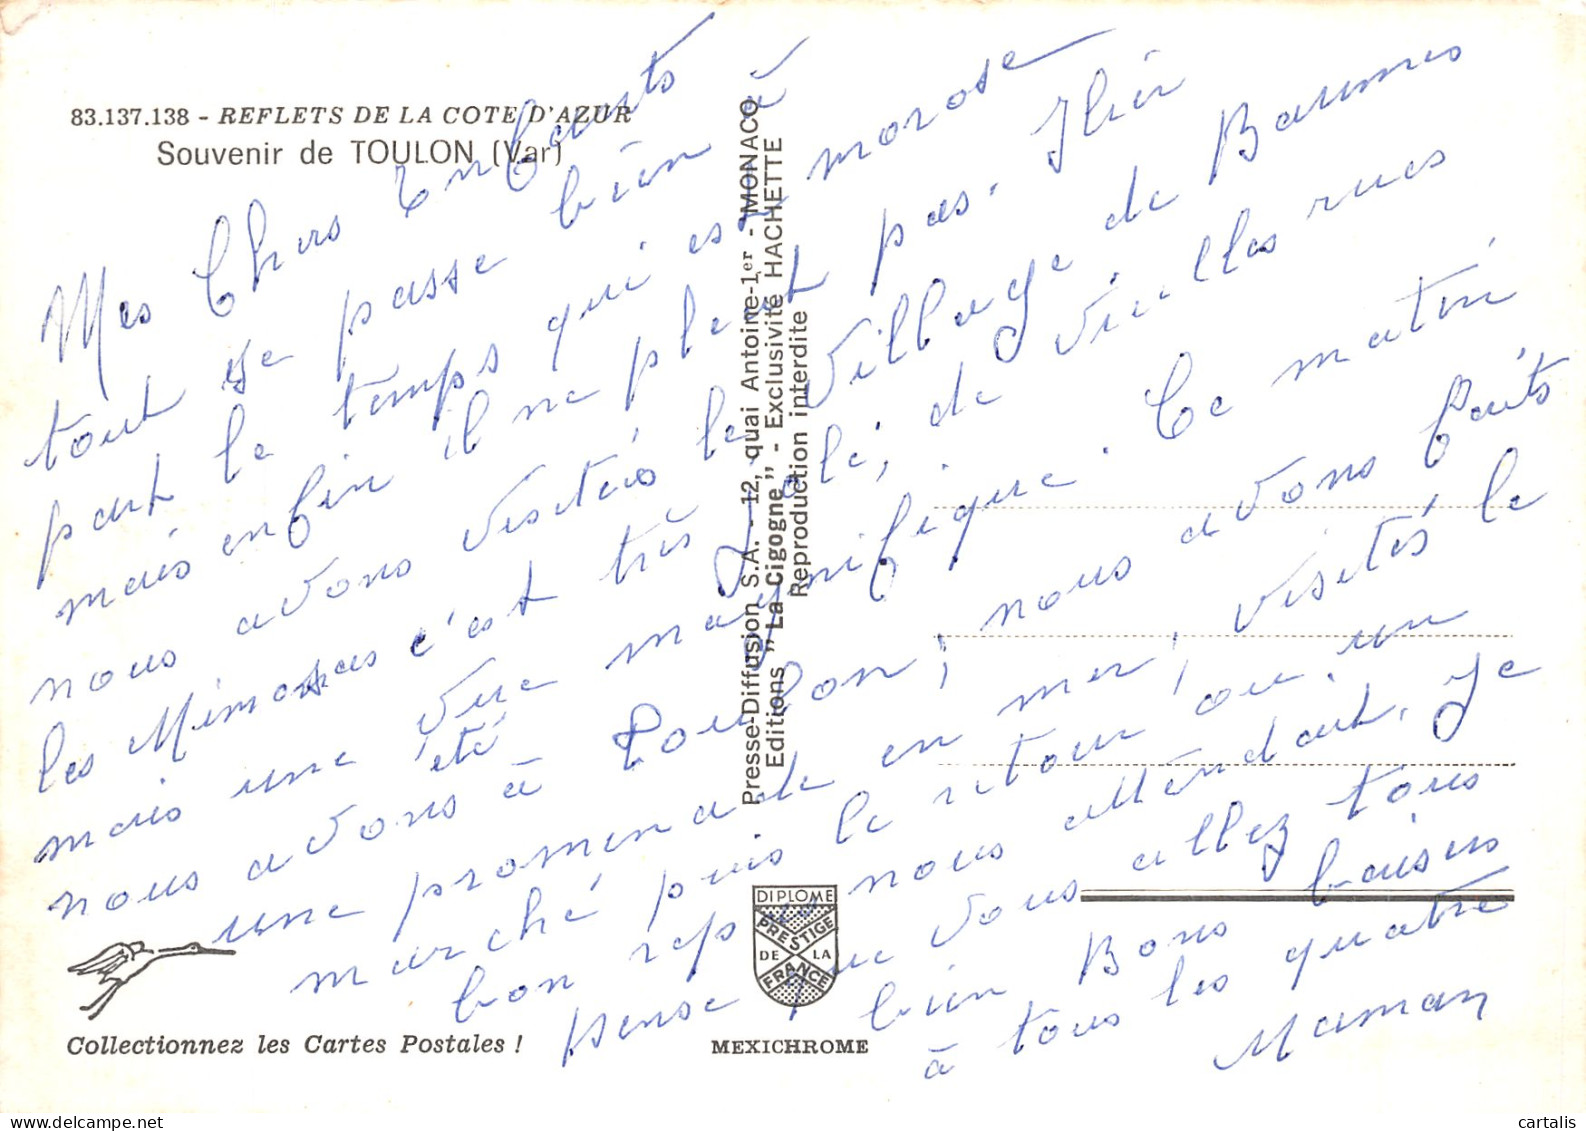 83.137.138 - REFLETS DE LA COTE D'AZUR
Souvenir de TOULON (Var)
Mes Chers Enfants
tout se passe bien à
part le temps qui est morose
mais enfin il ne pleut pas. Hier
nous avons visités le Village de Bormes
les Mimosas c'est très joli, de vieilles rues
mais une vue magnifique. Ce matin
nous avons été à Toulon, nous avons faits
une promenade en mer, visités le
marché puis le retour ou un
bon repas nous attendait. Je
pense que vous allez tous
bien Bons baisers
à tous les quatre
Maman
Presse-Diffusion S.A. - 12, quai Antoine-1er - MONACO
Editions "La Cigogne" - Exclusivité HACHETTE
Reproduction interdite
DIPLOME
PRESTIGE
DE LA
FRANCE
Collectionnez les Cartes Postales !
MEXICHROME
cartalis